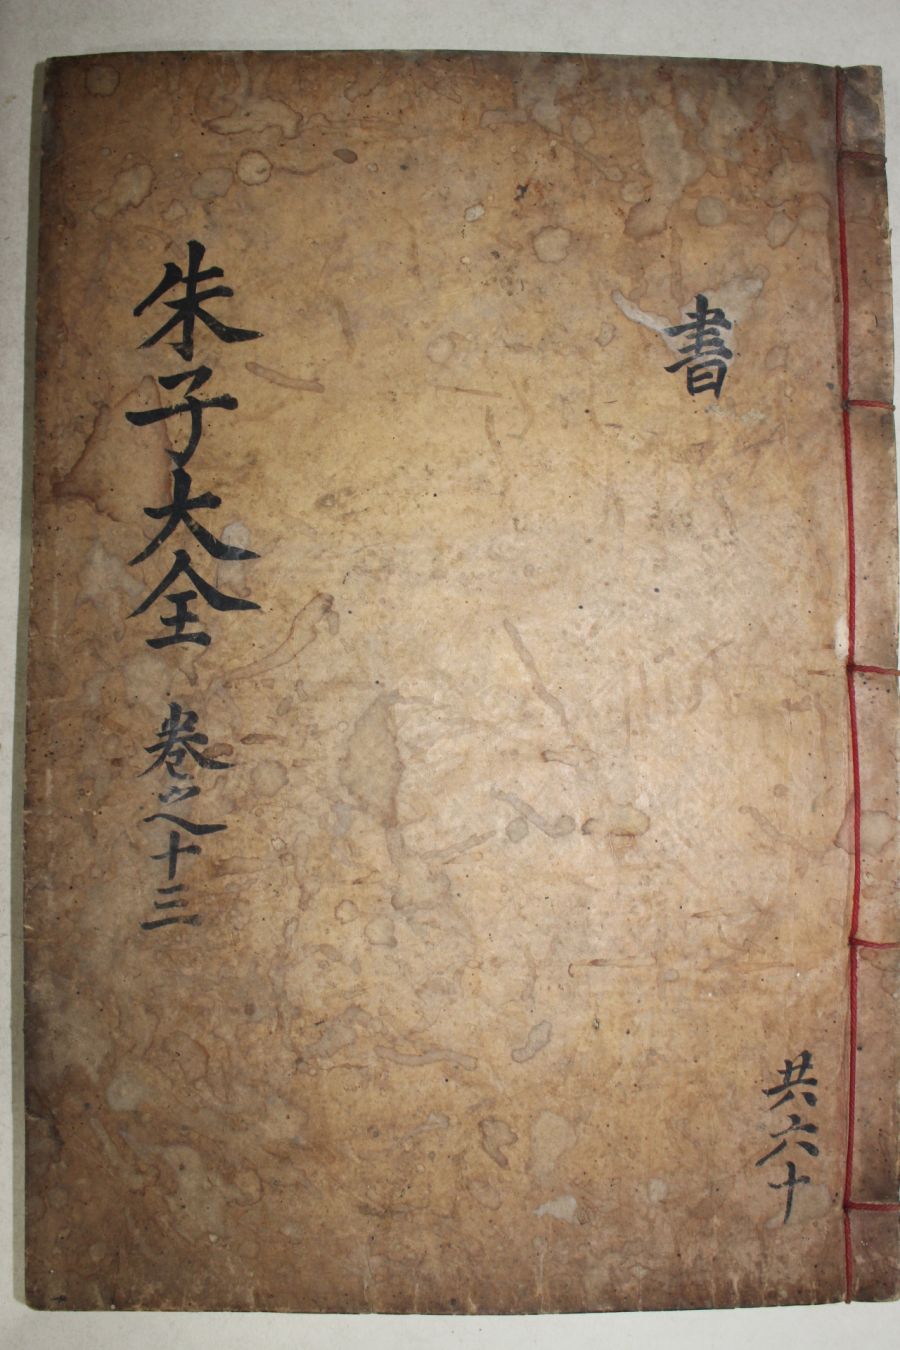 書
共六十
朱子大全 卷之十三